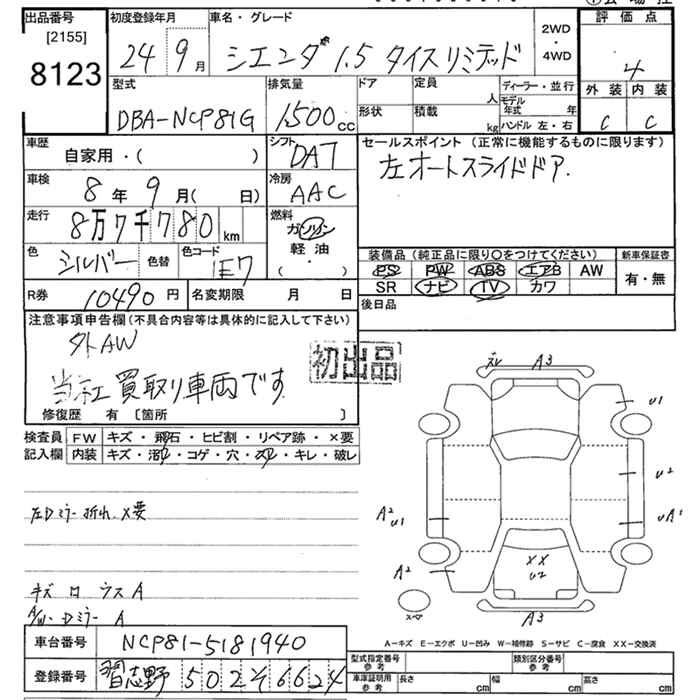 出品番号
[2155]
8123
初度登録年月
24 9月
車名・グレード
シエンタ 1.5 ダイスリミテッド
2WD
・
4WD
評価点
4
外装 内装
C C
型式
DBA-NCP81G
排気量
1500cc
ドア
形状
定員
人
積載
kg
ディーラー・並行
モデル
年式 年
ハンドル 左・右
車歴
自家用・( )
シフト
DAT
車検
8年 9月( 日)
冷房
AAC
走行
8万7千780km
燃料
ガソリン
軽油
( ・ )
色
シルバー
色替
色コード
1E7
R券
10490円
名変期限 月 日
セールスポイント (正常に機能するものに限ります)
左オートスライドドア.
装備品 (純正品に限り○をつけてください)
PS PW ABS エアB AW
SR ナビ TV カワ
新車保証書
有・無
後日品
注意事項申告欄(不具合内容等は具体的に記入して下さい)
外AW
当社買取り車両です
修復歴 有 [箇所 ]
初出品
検査員
記入欄
FW キズ・飛石・ヒビ割・リペア跡・×要
内装 キズ・汚レ・コゲ・穴・スレ・キレ・破レ
左Dミラー折れ ×要
キズ ロ ウス A
A/W・Dミラー A
ズレ A3
U1
U2
UA1
A2
U1
A2
XX
U2
A3
スペア
A-キズ E-エクボ U-凹み W-補修跡 S-サビ C-腐食 XX-交換済
車台番号 NCP81-5181940
登録番号 習志野 502 そ 6624
型式指定番号
参考
類別区分番号
参考
車庫証明用
参考
長さ cm 幅 cm 高さ cm